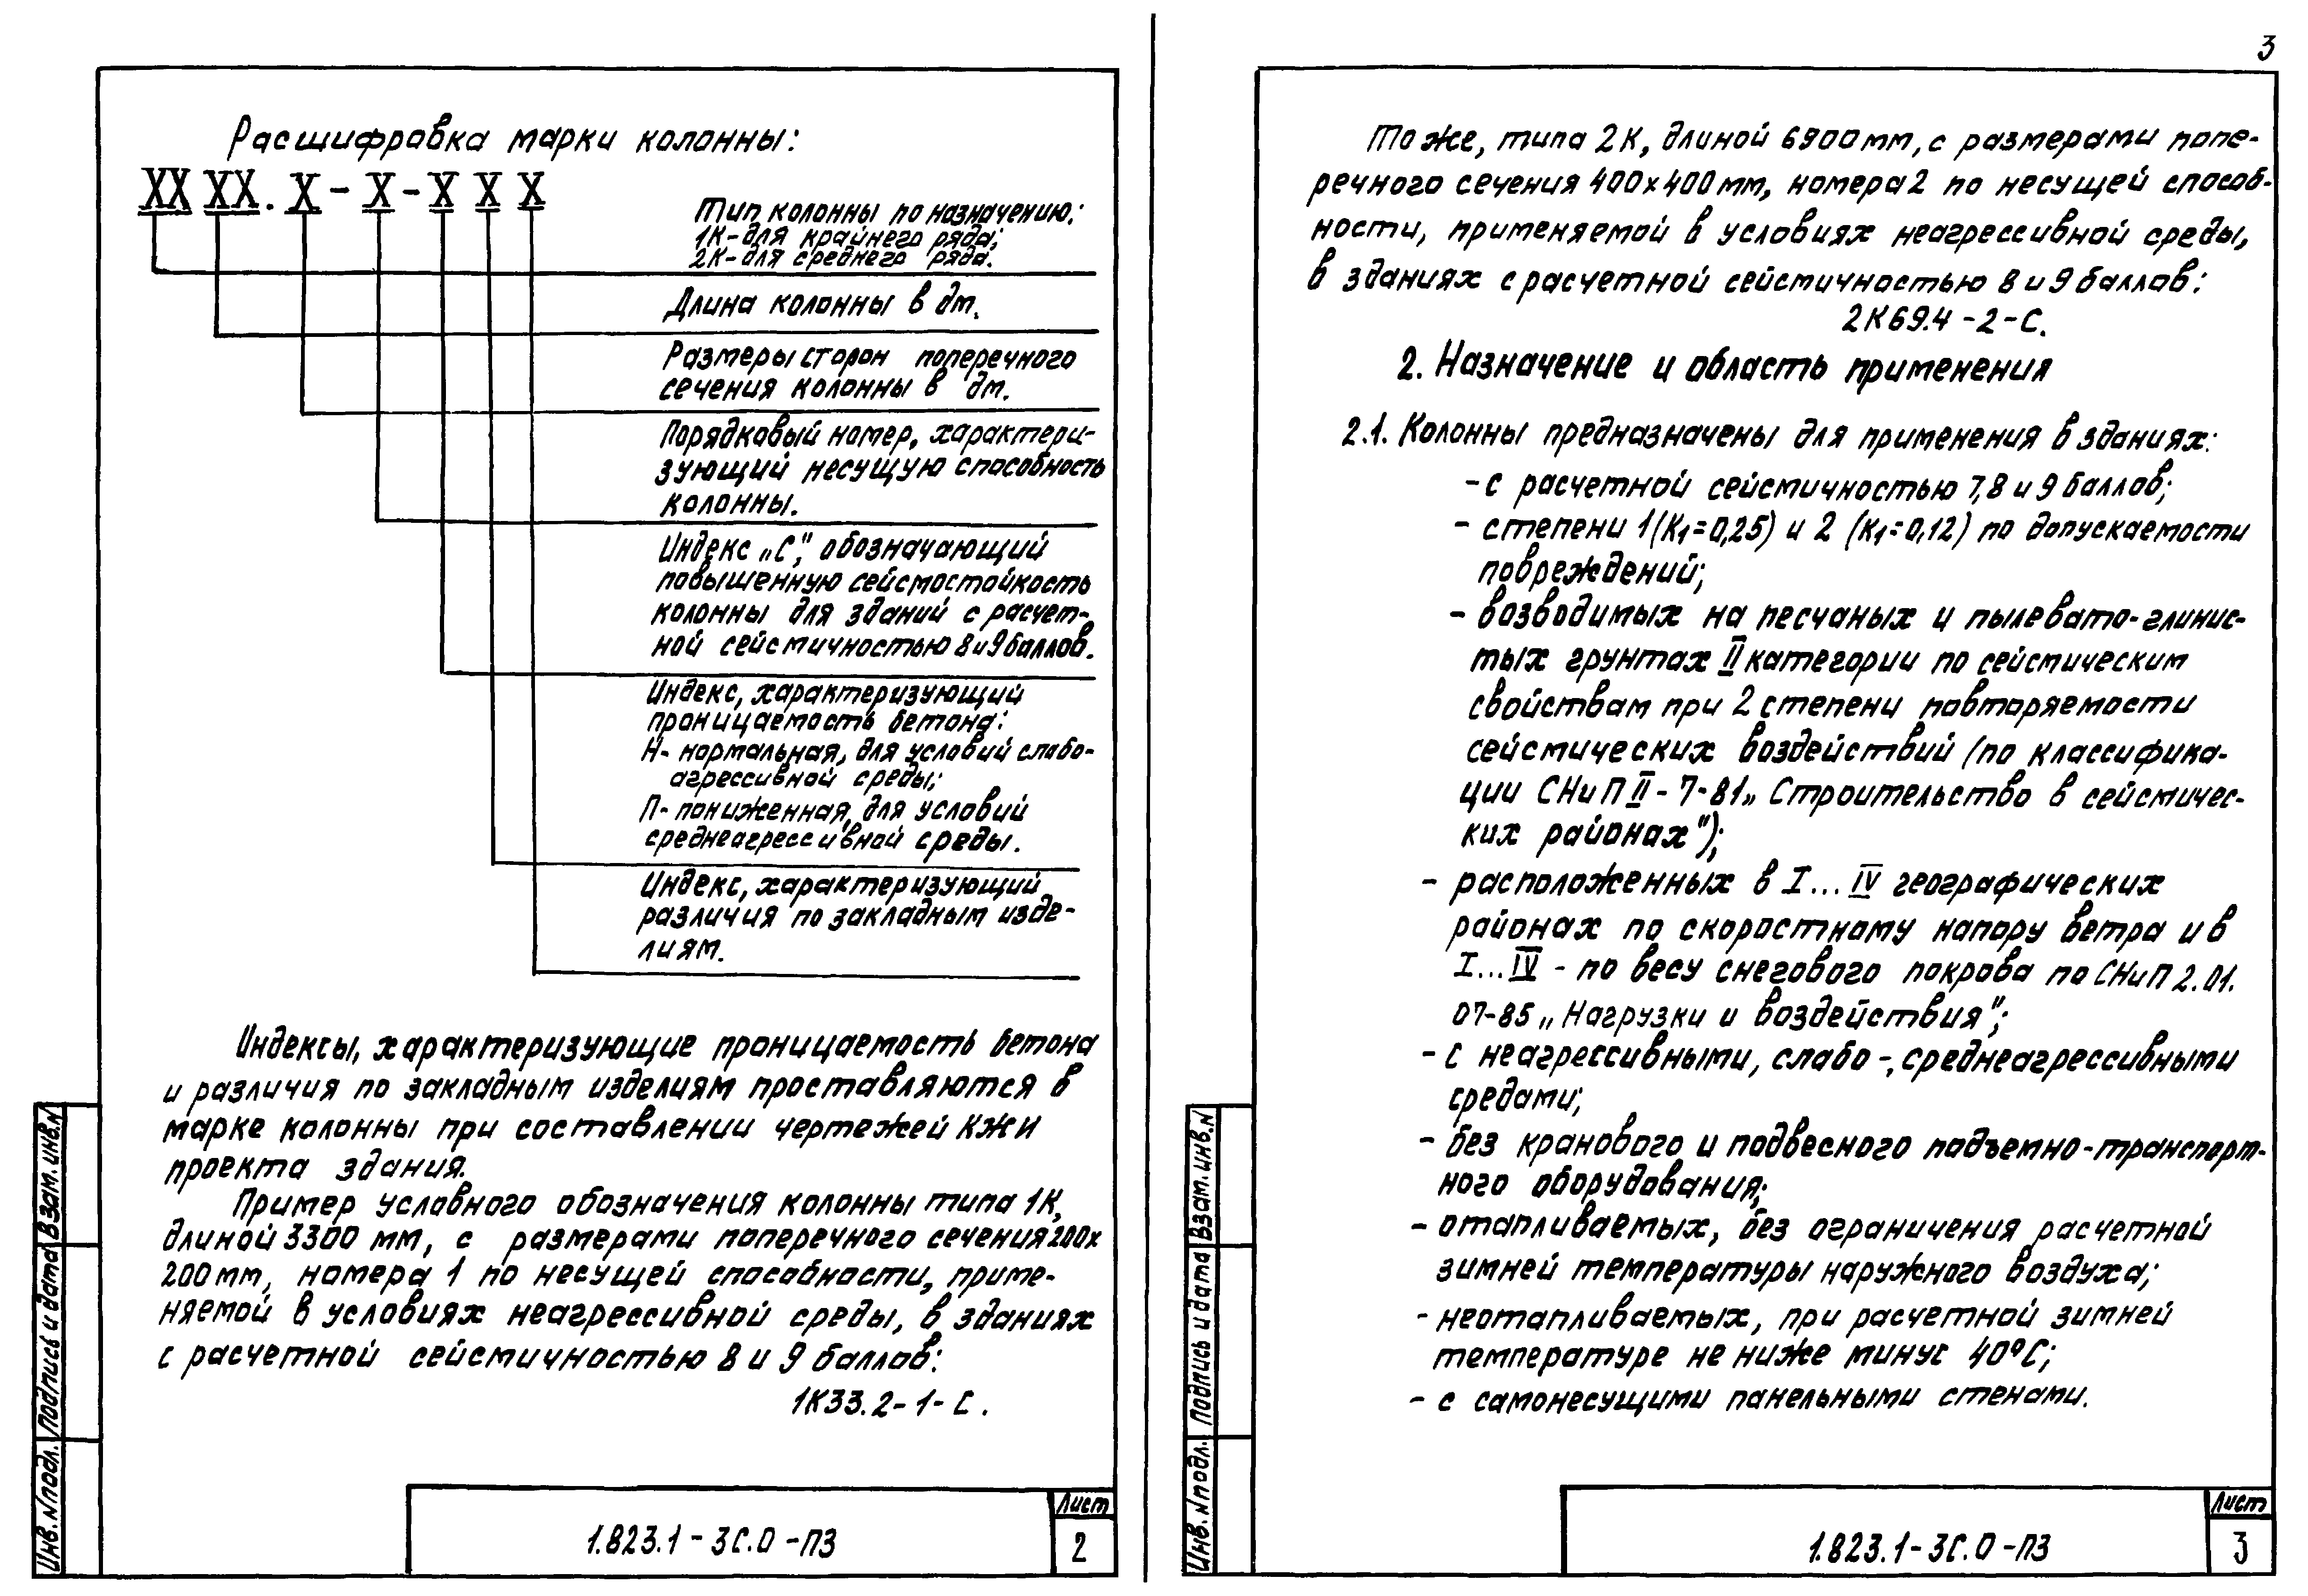 Расшифровка марки колонны:
XX XX. X - X - X X X
Тип колонны по назначению:
1К-для крайнего ряда;
2К-для среднего ряда.
Длина колонны в дм.
Размеры сторон поперечного
сечения колонны в дм.
Порядковый номер, характери-
зующий несущую способность
колонны.
Индекс „С", обозначающий
повышенную сейсмостойкость
колонны для зданий с расчет-
ной сейсмичностью 8 и 9 баллов.
Индекс, характеризующий
проницаемость бетона:
Н- нормальная, для условий слабо-
агрессивной среды;
П- пониженная, для условий
среднеагрессивной среды.
Индекс, характеризующий
различия по закладным изде-
лиям.
Индексы, характеризующие проницаемость бетона
и различия по закладным изделиям проставляются в
марке колонны при составлении чертежей КЖИ
проекта здания.
Пример условного обозначения колонны типа 1К,
длиной 3300 мм, с размерами поперечного сечения 200х
200мм, номера 1 по несущей способности, приме-
няемой в условиях неагрессивной среды, в зданиях
с расчетной сейсмичностью 8 и 9 баллов:
1К33.2-1-С.
Инв. N подл. Подпись и дата Взам. инв. N
1.823.1-3С.0-ПЗ
Лист
2
3
То же, типа 2К, длиной 6900мм, с размерами попе-
речного сечения 400х400мм, номера 2 по несущей способ-
ности, применяемой в условиях неагрессивной среды,
в зданиях с расчетной сейсмичностью 8 и 9 баллов:
2К69.4-2-С.
2. Назначение и область применения
2.1. Колонны предназначены для применения в зданиях:
- с расчетной сейсмичностью 7,8 и 9 баллов;
- степени 1(К1=0,25) и 2 (К1=0,12) по допускаемости
повреждений;
- возводимых на песчаных и пылевато-глинис-
тых грунтах II категории по сейсмическим
свойствам при 2 степени повторяемости
сейсмических воздействий (по классифика-
ции СНиП II-7-81 „Строительство в сейсмичес-
ких районах");
- расположенных в I...IV географических
районах по скоростному напору ветра и в
I...IV - по весу снегового покрова по СНиП 2.01.
07-85 „Нагрузки и воздействия";
- с неагрессивными, слабо-, среднеагрессивными
средами;
- без кранового и подвесного подъемно-транспорт-
ного оборудования;
- отапливаемых, без ограничения расчетной
зимней температуры наружного воздуха;
- неотапливаемых, при расчетной зимней
температуре не ниже минус 40°С;
- с самонесущими панельными стенами.
Инв. N подл. Подпись и дата Взам. инв. N
1.823.1-3С.0-ПЗ
Лист
3